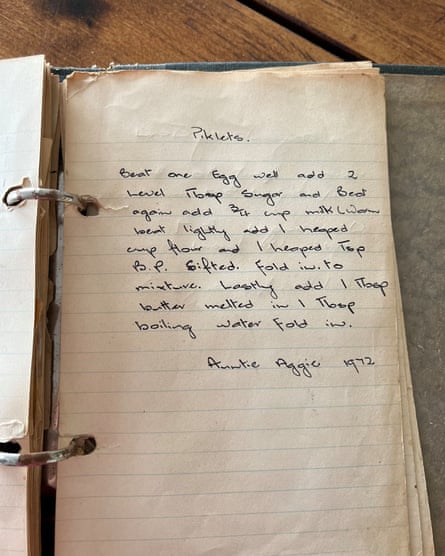 Piklets.
Beat one Egg well add 2
Level Tbsp Sugar and Beat
again add 3/4 cup milk (Warm
beat lightly add 1 heaped
cup flour and 1 heaped Tsp
B.P. Sifted. Fold in. to
mixture. Lastly add 1 Tbsp
butter melted in 1 Tbsp
boiling water Fold in.
Auntie Aggie 1972